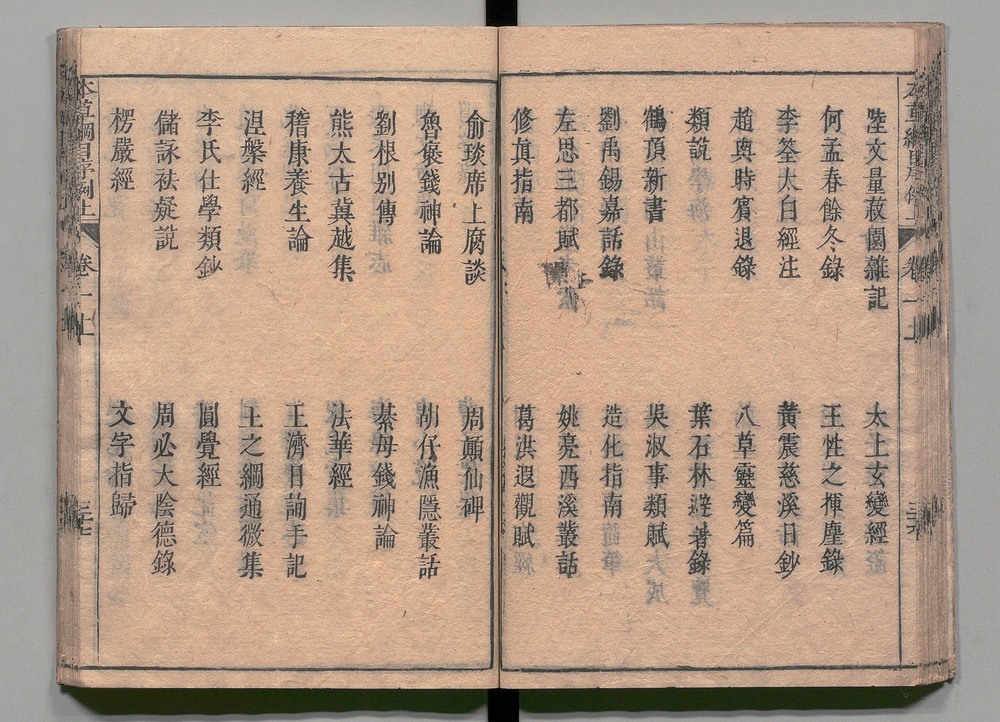 陸文量菽園雜記
太上玄變經
何孟春餘冬錄
王性之揮麈錄
李筌太白經注
黃震慈溪日鈔
趙與時賓退錄
八草靈變篇
類說
葉石林避暑錄
鶴頂新書
吳淑事類賦
劉禹錫嘉話錄
造化指南
左思三都賦
姚亮西溪叢話
修真指南
葛洪遐觀賦
俞琰席上腐談
周顛仙碑
魯褒錢神論
胡仔漁隱叢話
劉根別傳
綦母錢神論
熊太古冀越集
法華經
稽康養生論
王濟日詢手記
涅槃經
王之綱通微集
李氏仕學類鈔
圓覺經
儲詠祛疑說
周必大陰德錄
楞嚴經
文字指歸
本草綱目序例上
卷一上
三十七